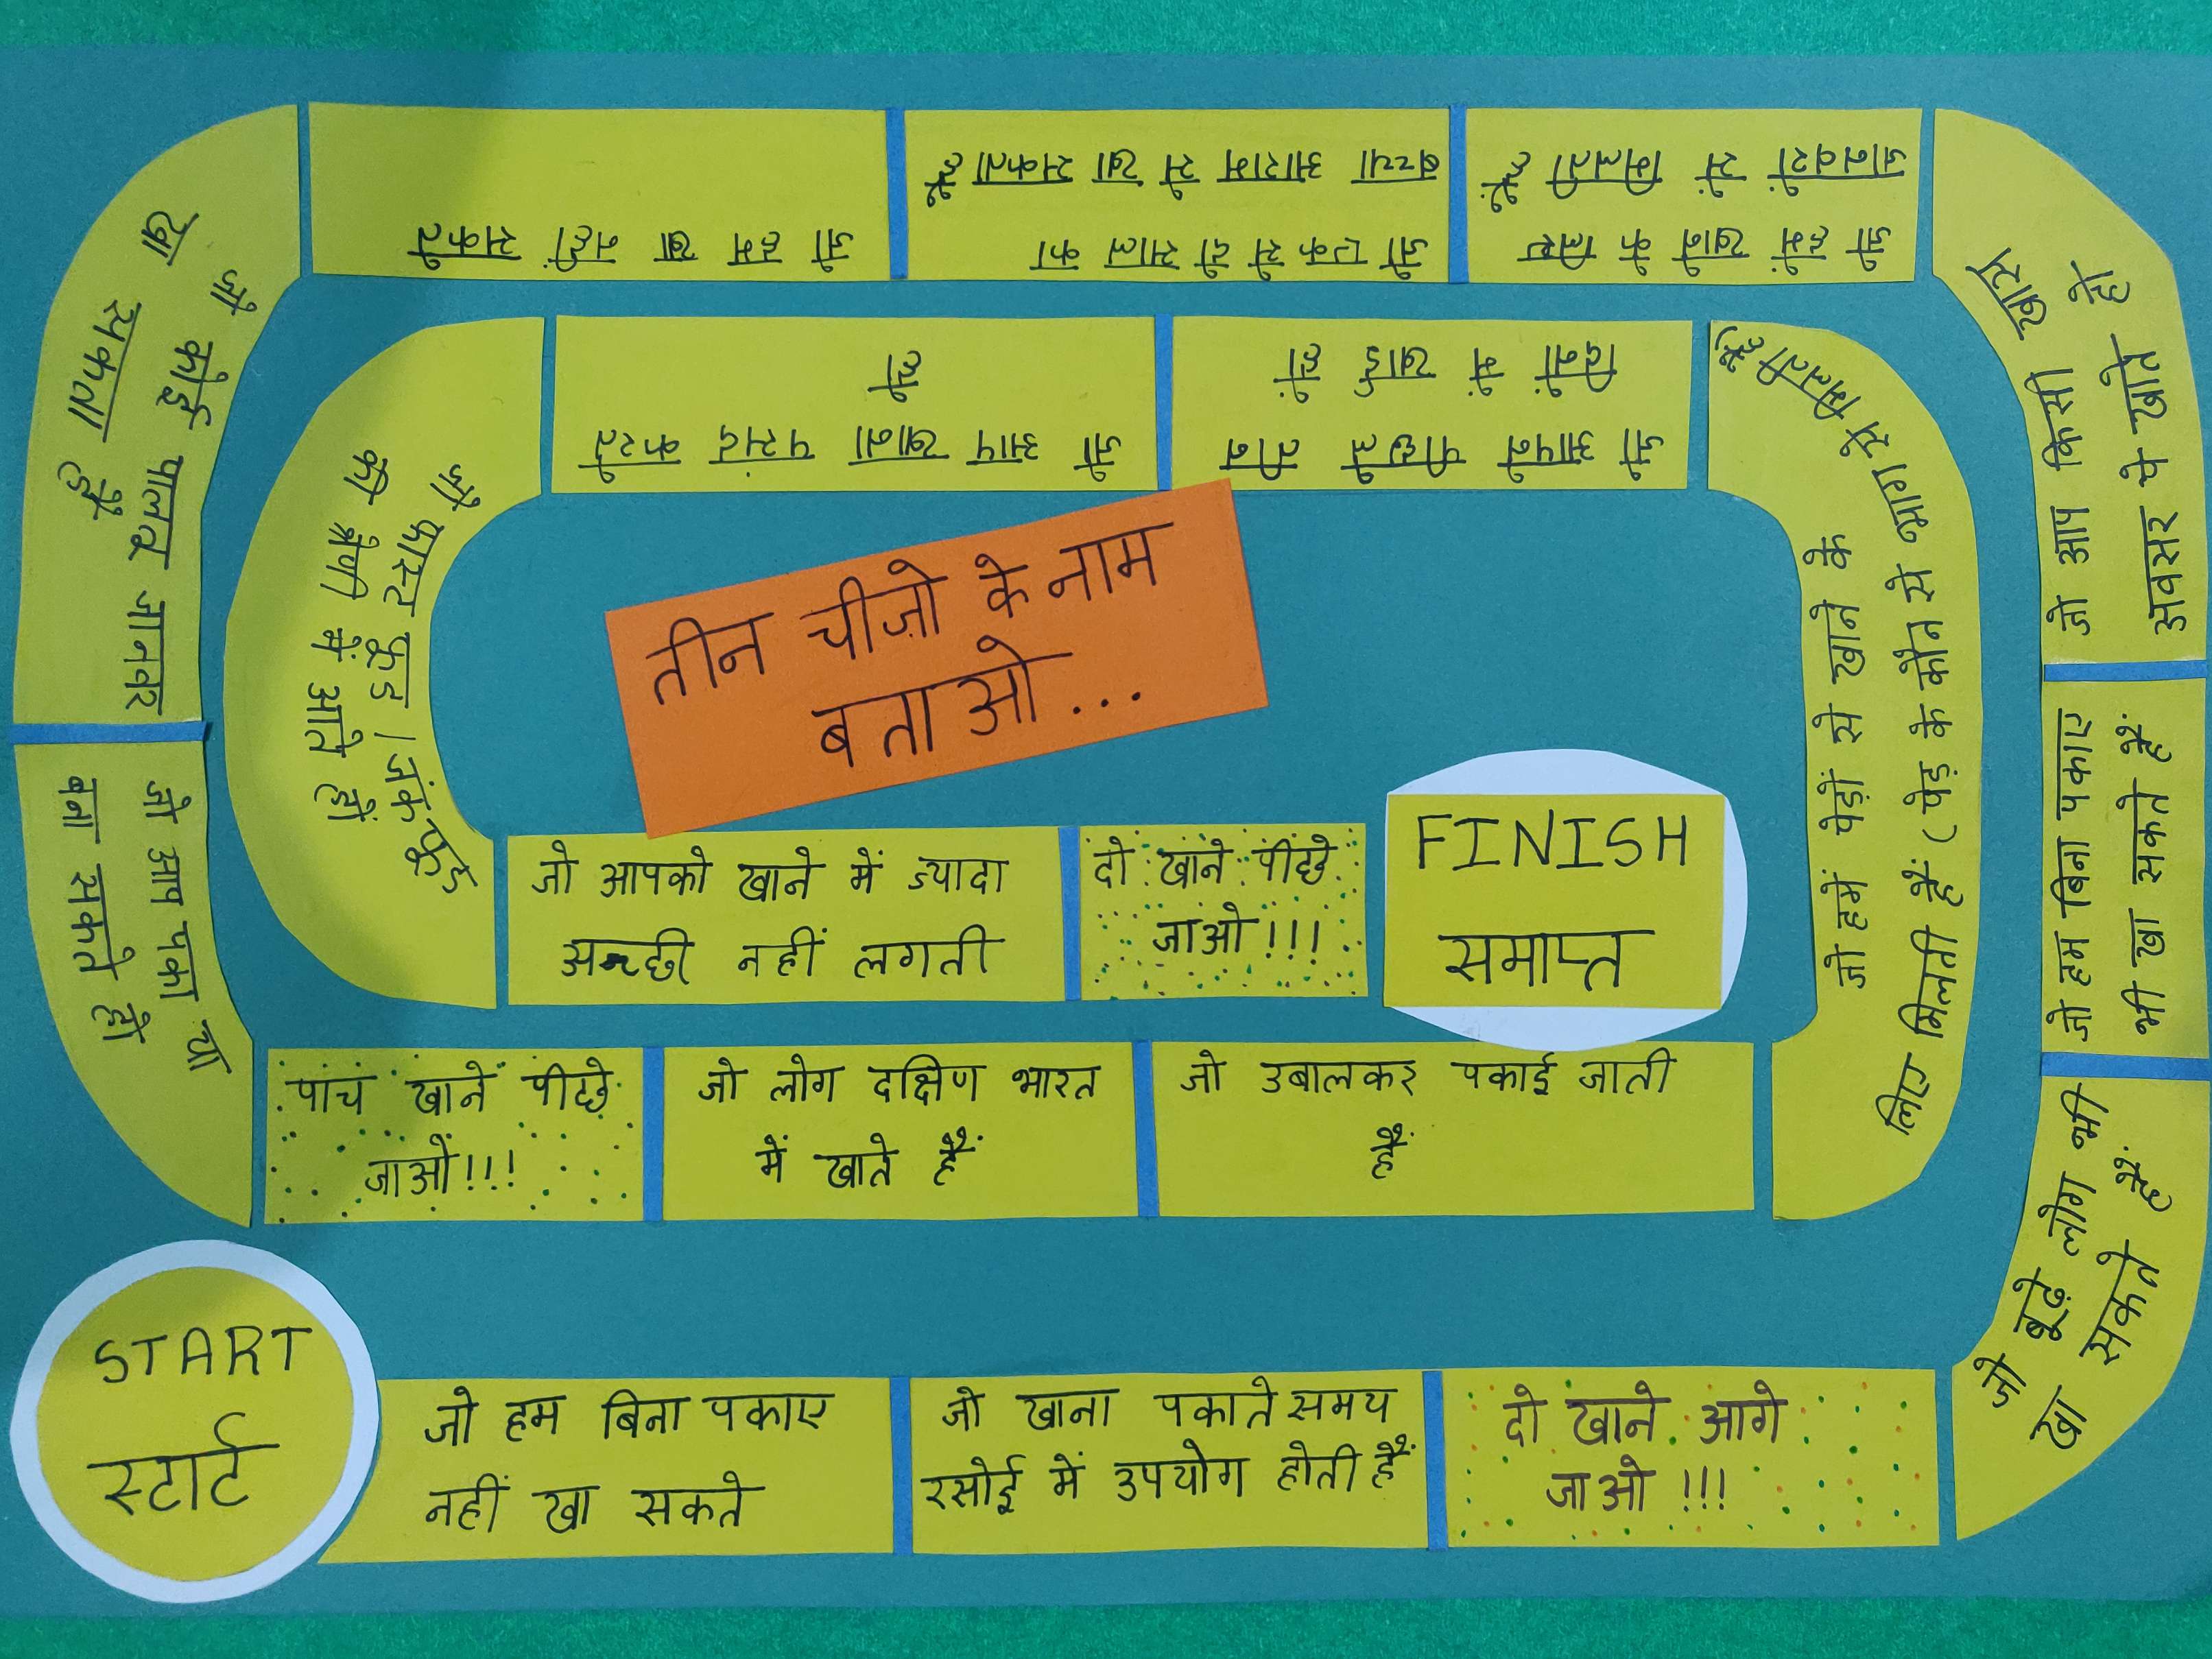 तीन चीज़ो के नाम
बताओ...
START
स्टार्ट
जो हम बिना पकाए
नहीं खा सकते
जो खाना पकाते समय
रसोई में उपयोग होती हैं
दो खाने आगे
जाओ !!!
जो बूढ़े लोग भी
खा सकते हैं
जो हम बिना पकाए
भी खा सकते हैं
जो आप किसी खास
अवसर पे खाते हो
जो हमें खाने के लिए
जानवरों से मिलती हैं
जो एक से दो साल का
बच्चा आराम से खा सकता है
जो हम खा नहीं सकते
जो कोई पालतू जानवर
खा सकता है
जो आप पका या
बना सकते हो
पांच खाने पीछे
जाओ !!!
जो लोग दक्षिण भारत
में खाते हैं
जो उबालकर पकाई जाती
हैं
जो हमें पेड़ो से खाने के
लिए मिलती हैं (पेड़ के कौन से भाग से मिलती है)
जो आपने पीछले तीन
दिनों में खाई हों
जो आप खाना पसंद करते
हो
जो फास्ट फूड / जंक फूड
की श्रेणी में आते हों
जो आपको खाने में ज्यादा
अच्छी नहीं लगती
दो खाने पीछे
जाओ !!!
FINISH
समाप्त